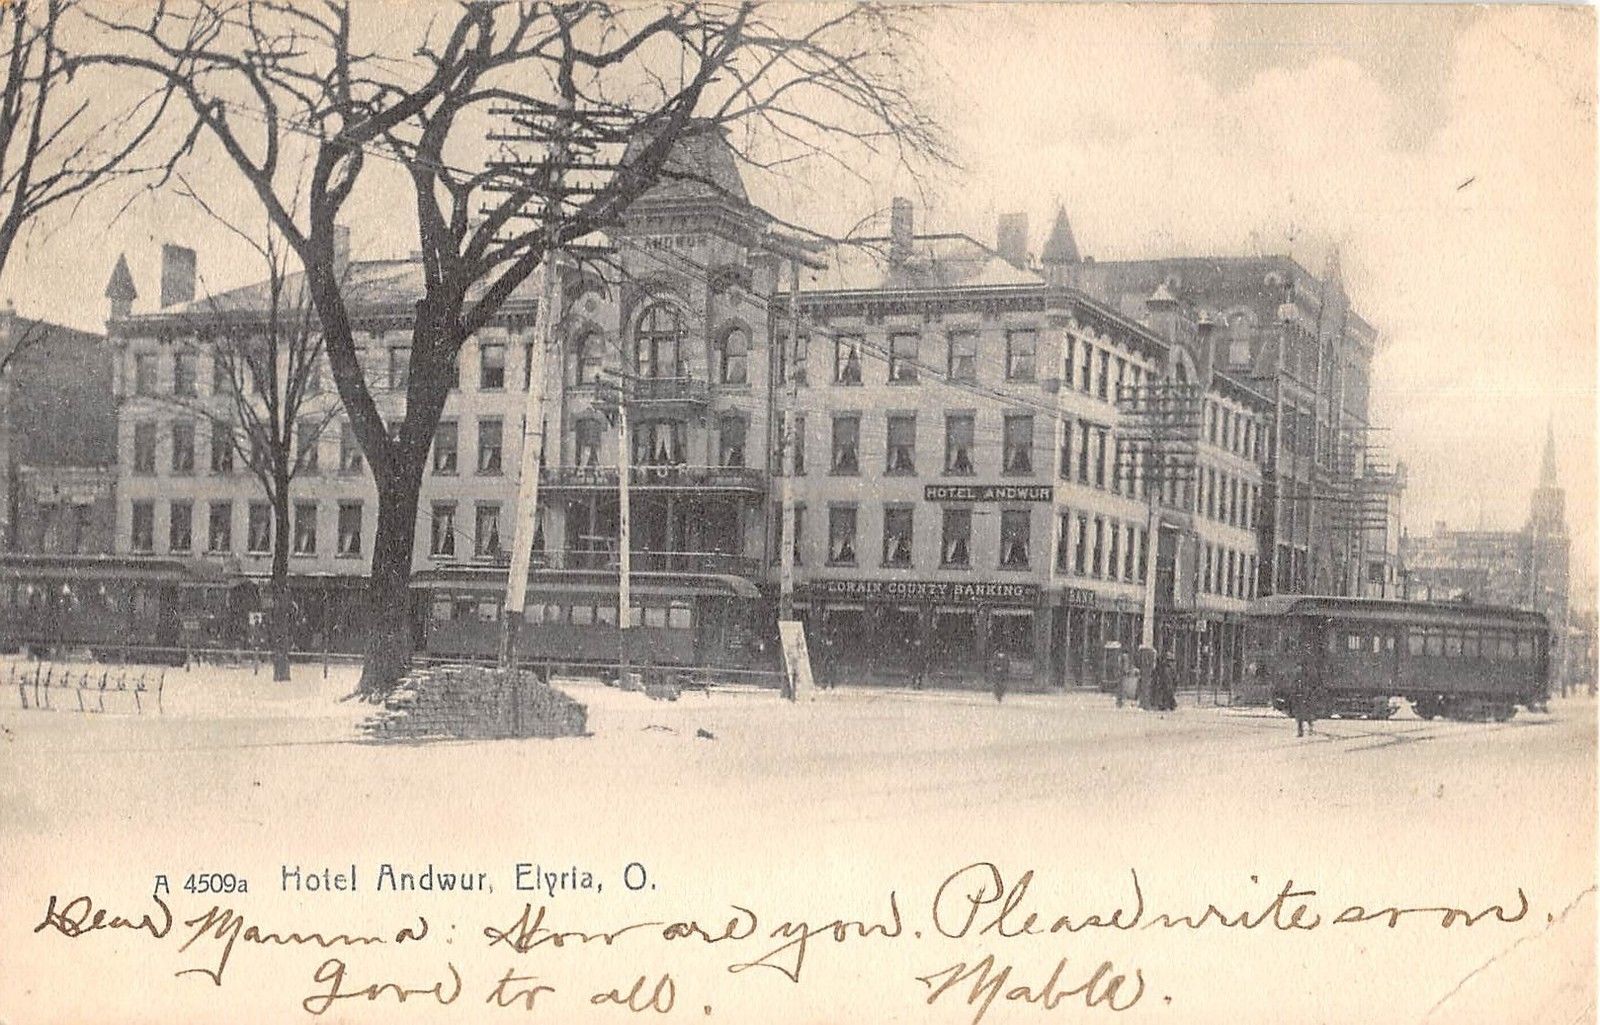 THE ANDWUR
HOTEL ANDWUR
LORAIN COUNTY BANKING
BANK
A 4509a Hotel Andwur, Elyria, O.
Dear Mamma: How are you. Please write soon.
Love to all. Mable.